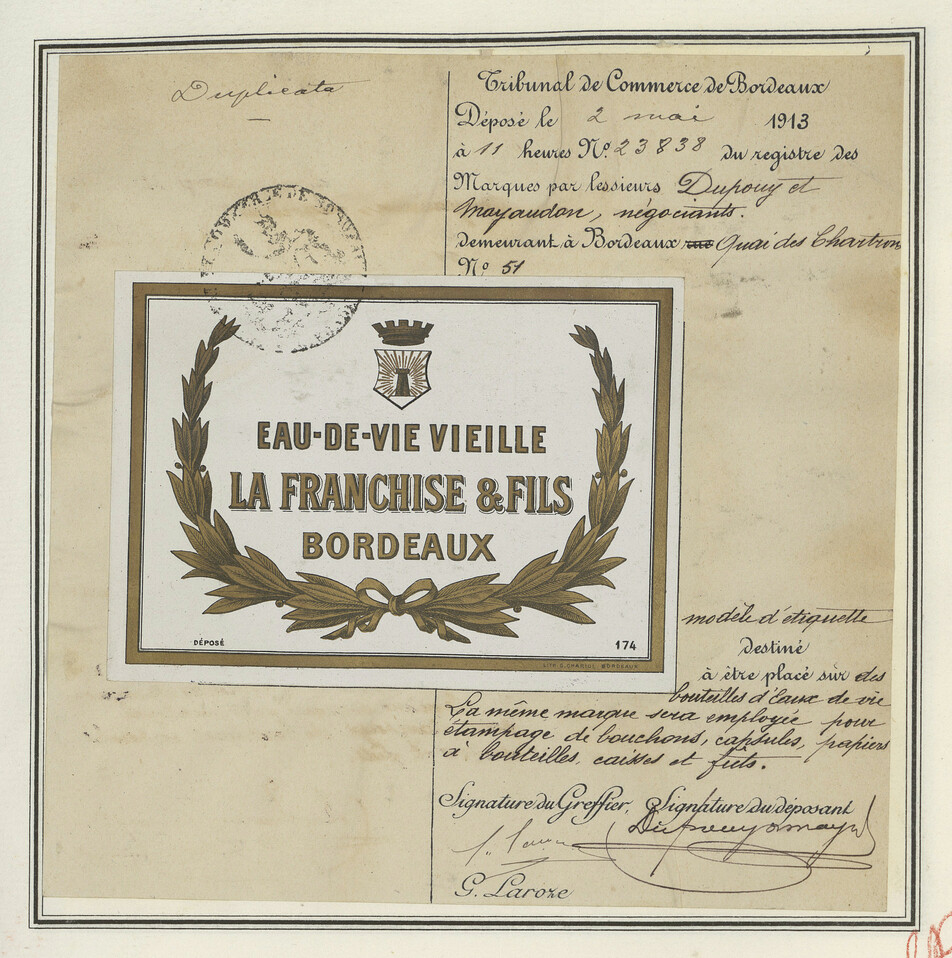 Duplicata
Tribunal de Commerce de Bordeaux
Déposé le 2 mai 1913
à 11 heures No. 23838 du registre des
Marques par lessieurs Dupouy et
Mayaudon, négociants.
demeurant à Bordeaux rue Quai des Chartrons
No. 51
EAU-DE-VIE VIEILLE
LA FRANCHISE & FILS
BORDEAUX
DÉPOSÉ
174
BORDEAUX
modèle d'étiquette
destiné
à être placé sur des
bouteilles d'Eaux de vie
La même marque sera employée pour
étampage de bouchons, capsules, papiers
à bouteilles, caisses et fûts.
Signature du Greffier, Signature du déposant
G. Laroze